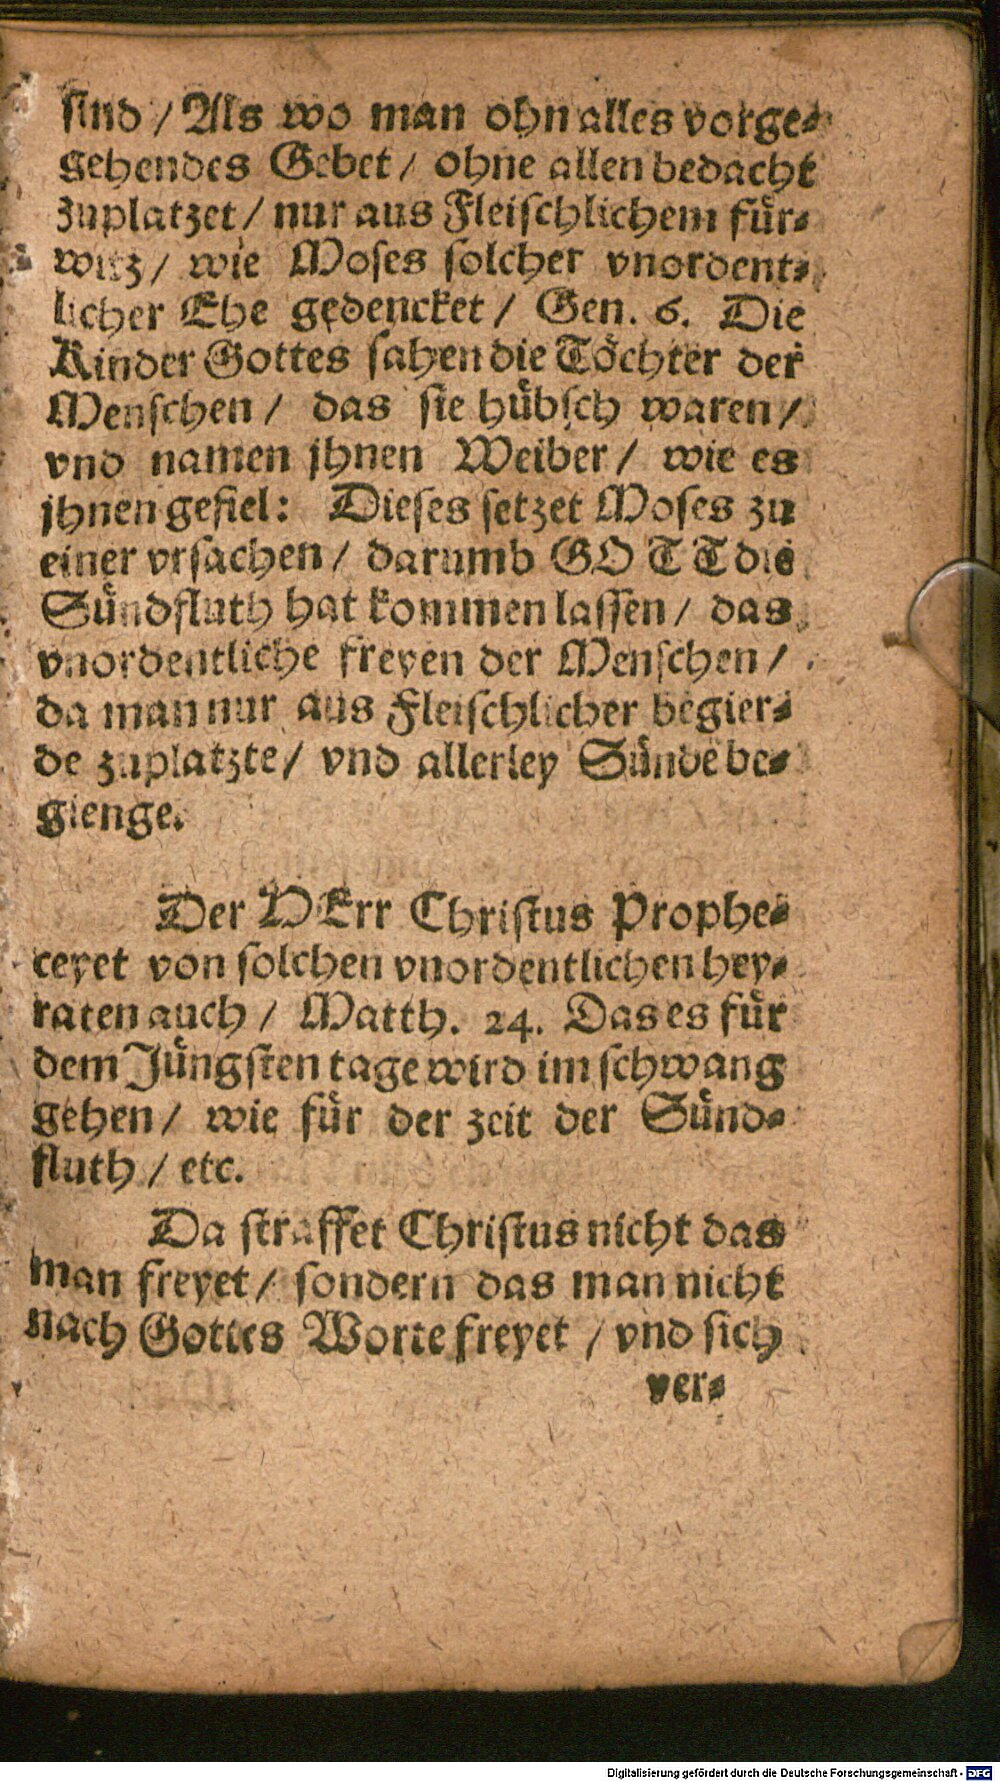 sind / Als wo man ohn alles vorge-
gehendes Gebet / ohne allen bedacht
zuplatzet / nur aus Fleischlichem für-
witz / wie Moses solcher vnordent-
licher Ehe gedencket / Gen. 6. Die
Kinder Gottes sahen die Töchter der
Menschen / das sie hübsch waren /
vnd namen jhnen Weiber / wie es
jhnen gefiel: Dieses setzet Moses zu
einer vrsachen / darumb GOTT die
Sündfluth hat kommen lassen / das
vnordentliche freyen der Menschen /
da man nur aus Fleischlicher begier-
de zuplatzte / vnd allerley Sünde be-
gienge.
Der HErr Christus Prophe-
ceyet von solchen vnordentlichen hey-
raten auch / Matth. 24. Das es für
dem Jüngsten tage wird im schwang
gehen / wie für der zeit der Sünd-
fluth / etc.
Da straffet Christus nicht das
man freyet / sondern das man nicht
nach Gottes Worte freyet / vnd sich
ver-
Digitalisierung gefördert durch die Deutsche Forschungsgemeinschaft - DFG